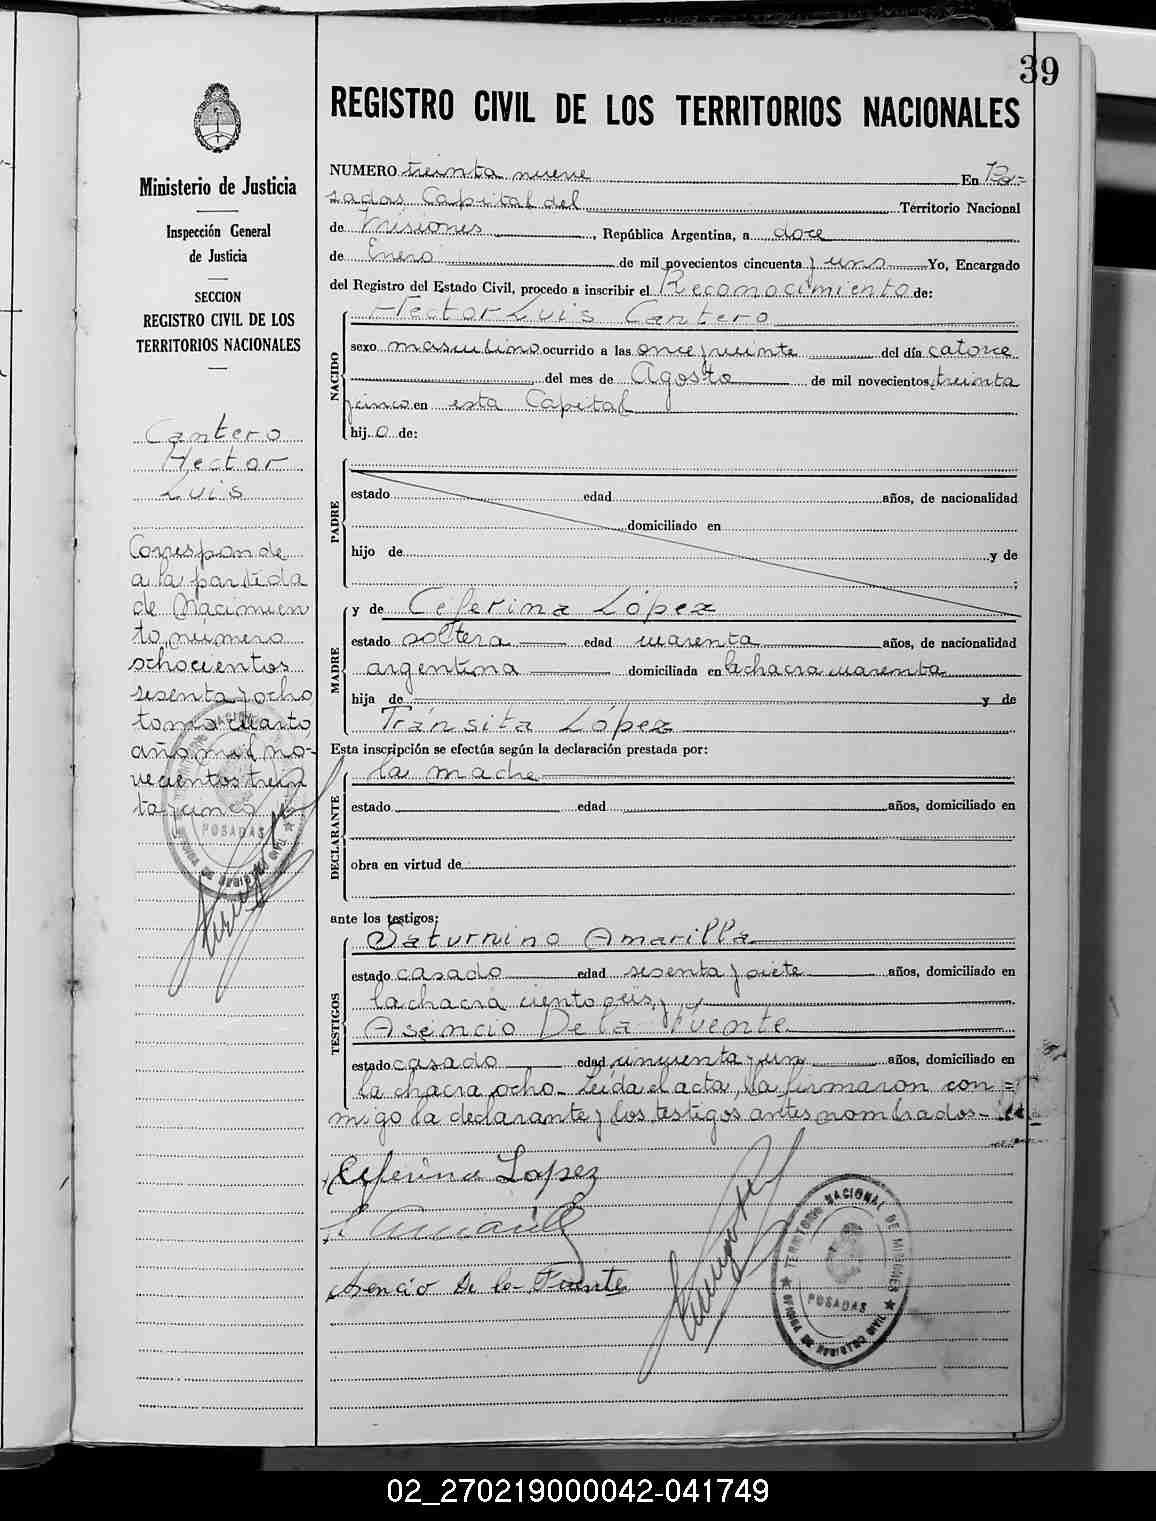 39
REGISTRO CIVIL DE LOS TERRITORIOS NACIONALES
Ministerio de Justicia
Inspección General
de Justicia
SECCION
REGISTRO CIVIL DE LOS
TERRITORIOS NACIONALES
Cantero
Hector
Luis
Corresponde
a la partida
de Nacimien
to número
ochocientos
sesenta y ocho
tomo cuarto,
año mil no-
vecientos trein
ta y cinco
POSADAS
NUMERO treinta nueve En Po-
sadas Capital del Territorio Nacional
de Misiones, República Argentina, a doce
de Enero de mil novecientos cincuenta y uno Yo, Encargado
del Registro del Estado Civil, procedo a inscribir el Reconocimiento de:
Hector Luis Cantero
NACIDO
sexo masculino ocurrido a las once y veinte del día catorce
del mes de Agosto de mil novecientos treinta
y cinco en esta Capital
hijo de:
PADRE
estado edad años, de nacionalidad
domiciliado en
hijo de y de
;
y de Ceferina López
MADRE
estado soltera edad cuarenta años, de nacionalidad
argentina domiciliada en la chacra cuarenta
hija de y de
Tránsita López
Esta inscripción se efectúa según la declaración prestada por:
la madre
DECLARANTE
estado edad años, domiciliado en
obra en virtud de
ante los testigos:
Saturnino Amarilla
TESTIGOS
estado casado edad sesenta y siete años, domiciliado en
la chacra ciento seis, y
Asencio De la Fuente
estado casado edad cincuenta y un años, domiciliado en
la chacra ocho. Leída el acta, la firmaron con=
migo la declarante y los testigos antes nombrados-
Ceferina Lopez
S Amarilla
Asencio De la Fuente
TERRITORIO NACIONAL DE MISIONES
POSADAS
OFICINA DE REGISTRO CIVIL
02_270219000042-041749